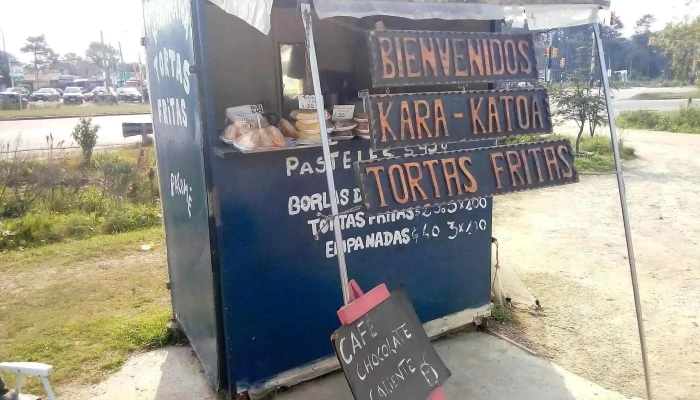 TORTAS
FRITAS
BIENVENIDOS
KARA-KATOA
TORTAS FRITAS
PASTELES
BORLAS D
TORTAS FRITAS
EMPANADAS $40 3x110
CAFÉ
CHOCOLATE
CALIENTE